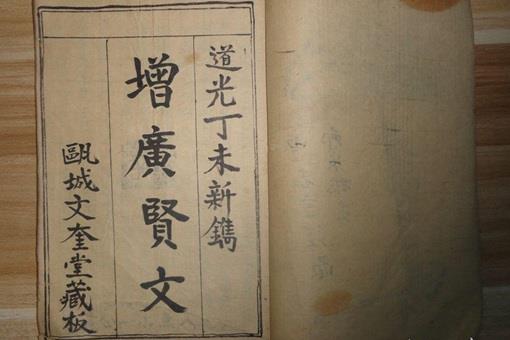 道光丁未新鐫
增廣賢文
甌城文奎堂藏板